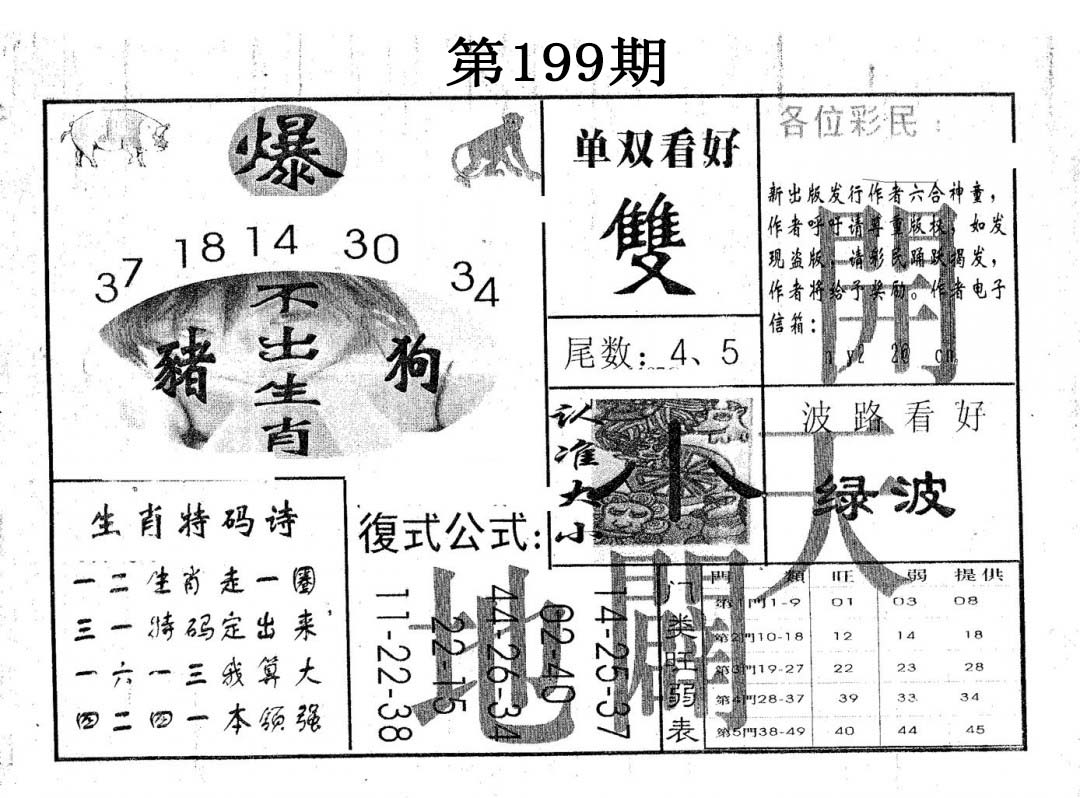 第199期
爆
37 18 14 30 34
不出生肖
豬
狗
单双看好
雙
尾数：4、5
各位彩民：
新出版发行作者六合神童，
作者呼吁请尊重版权，如发
现盗版，请彩民踊跃揭发，
作者将给予奖励。作者电子
信箱：
開
认准大小
小
波路看好
绿波
天
生肖特码诗
一二生肖走一圈
三一特码定出来，
一六一三我算大
四二四一本领强
復式公式：
11-22-38
22-15
44-26-34
02-40
14-25-37
地
開
门类旺弱表
門類 旺 弱 提供
第1門1-9 01 03 08
第2門10-18 12 14 18
第3門19-27 22 23 28
第4門28-37 39 33 34
第5門38-49 40 44 45